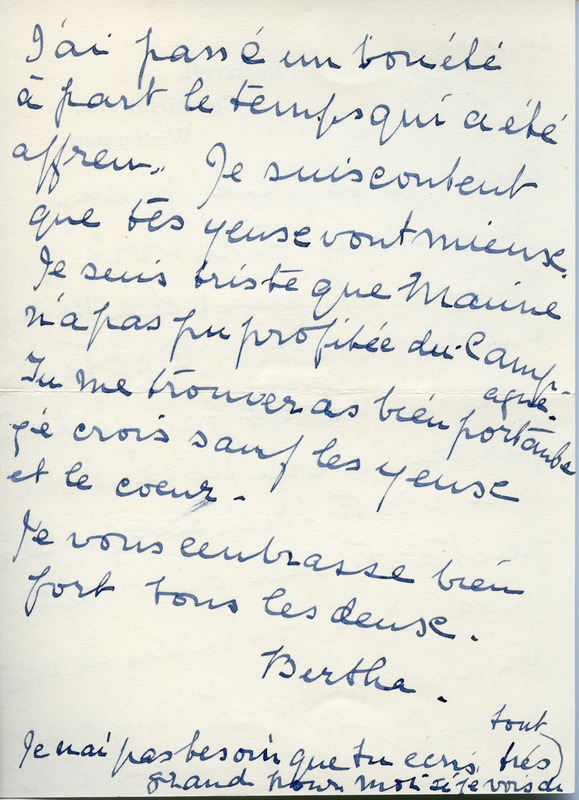 J'ai passé un bon été
à part le temps qui a été
affreux. Je suis content
que tes yeuse vont mieux.
Je suis triste que Marine
n'a pas pu profitée du Camp-
agne.
Tu me trouveras bien portante
je crois sauf les yeuse
et le coeur.
Je vous embrasse bien
fort tous les deuse.
Bertha.
tout
Je n'ai pas besoin que tu écris très
grand pour moi si je vois du